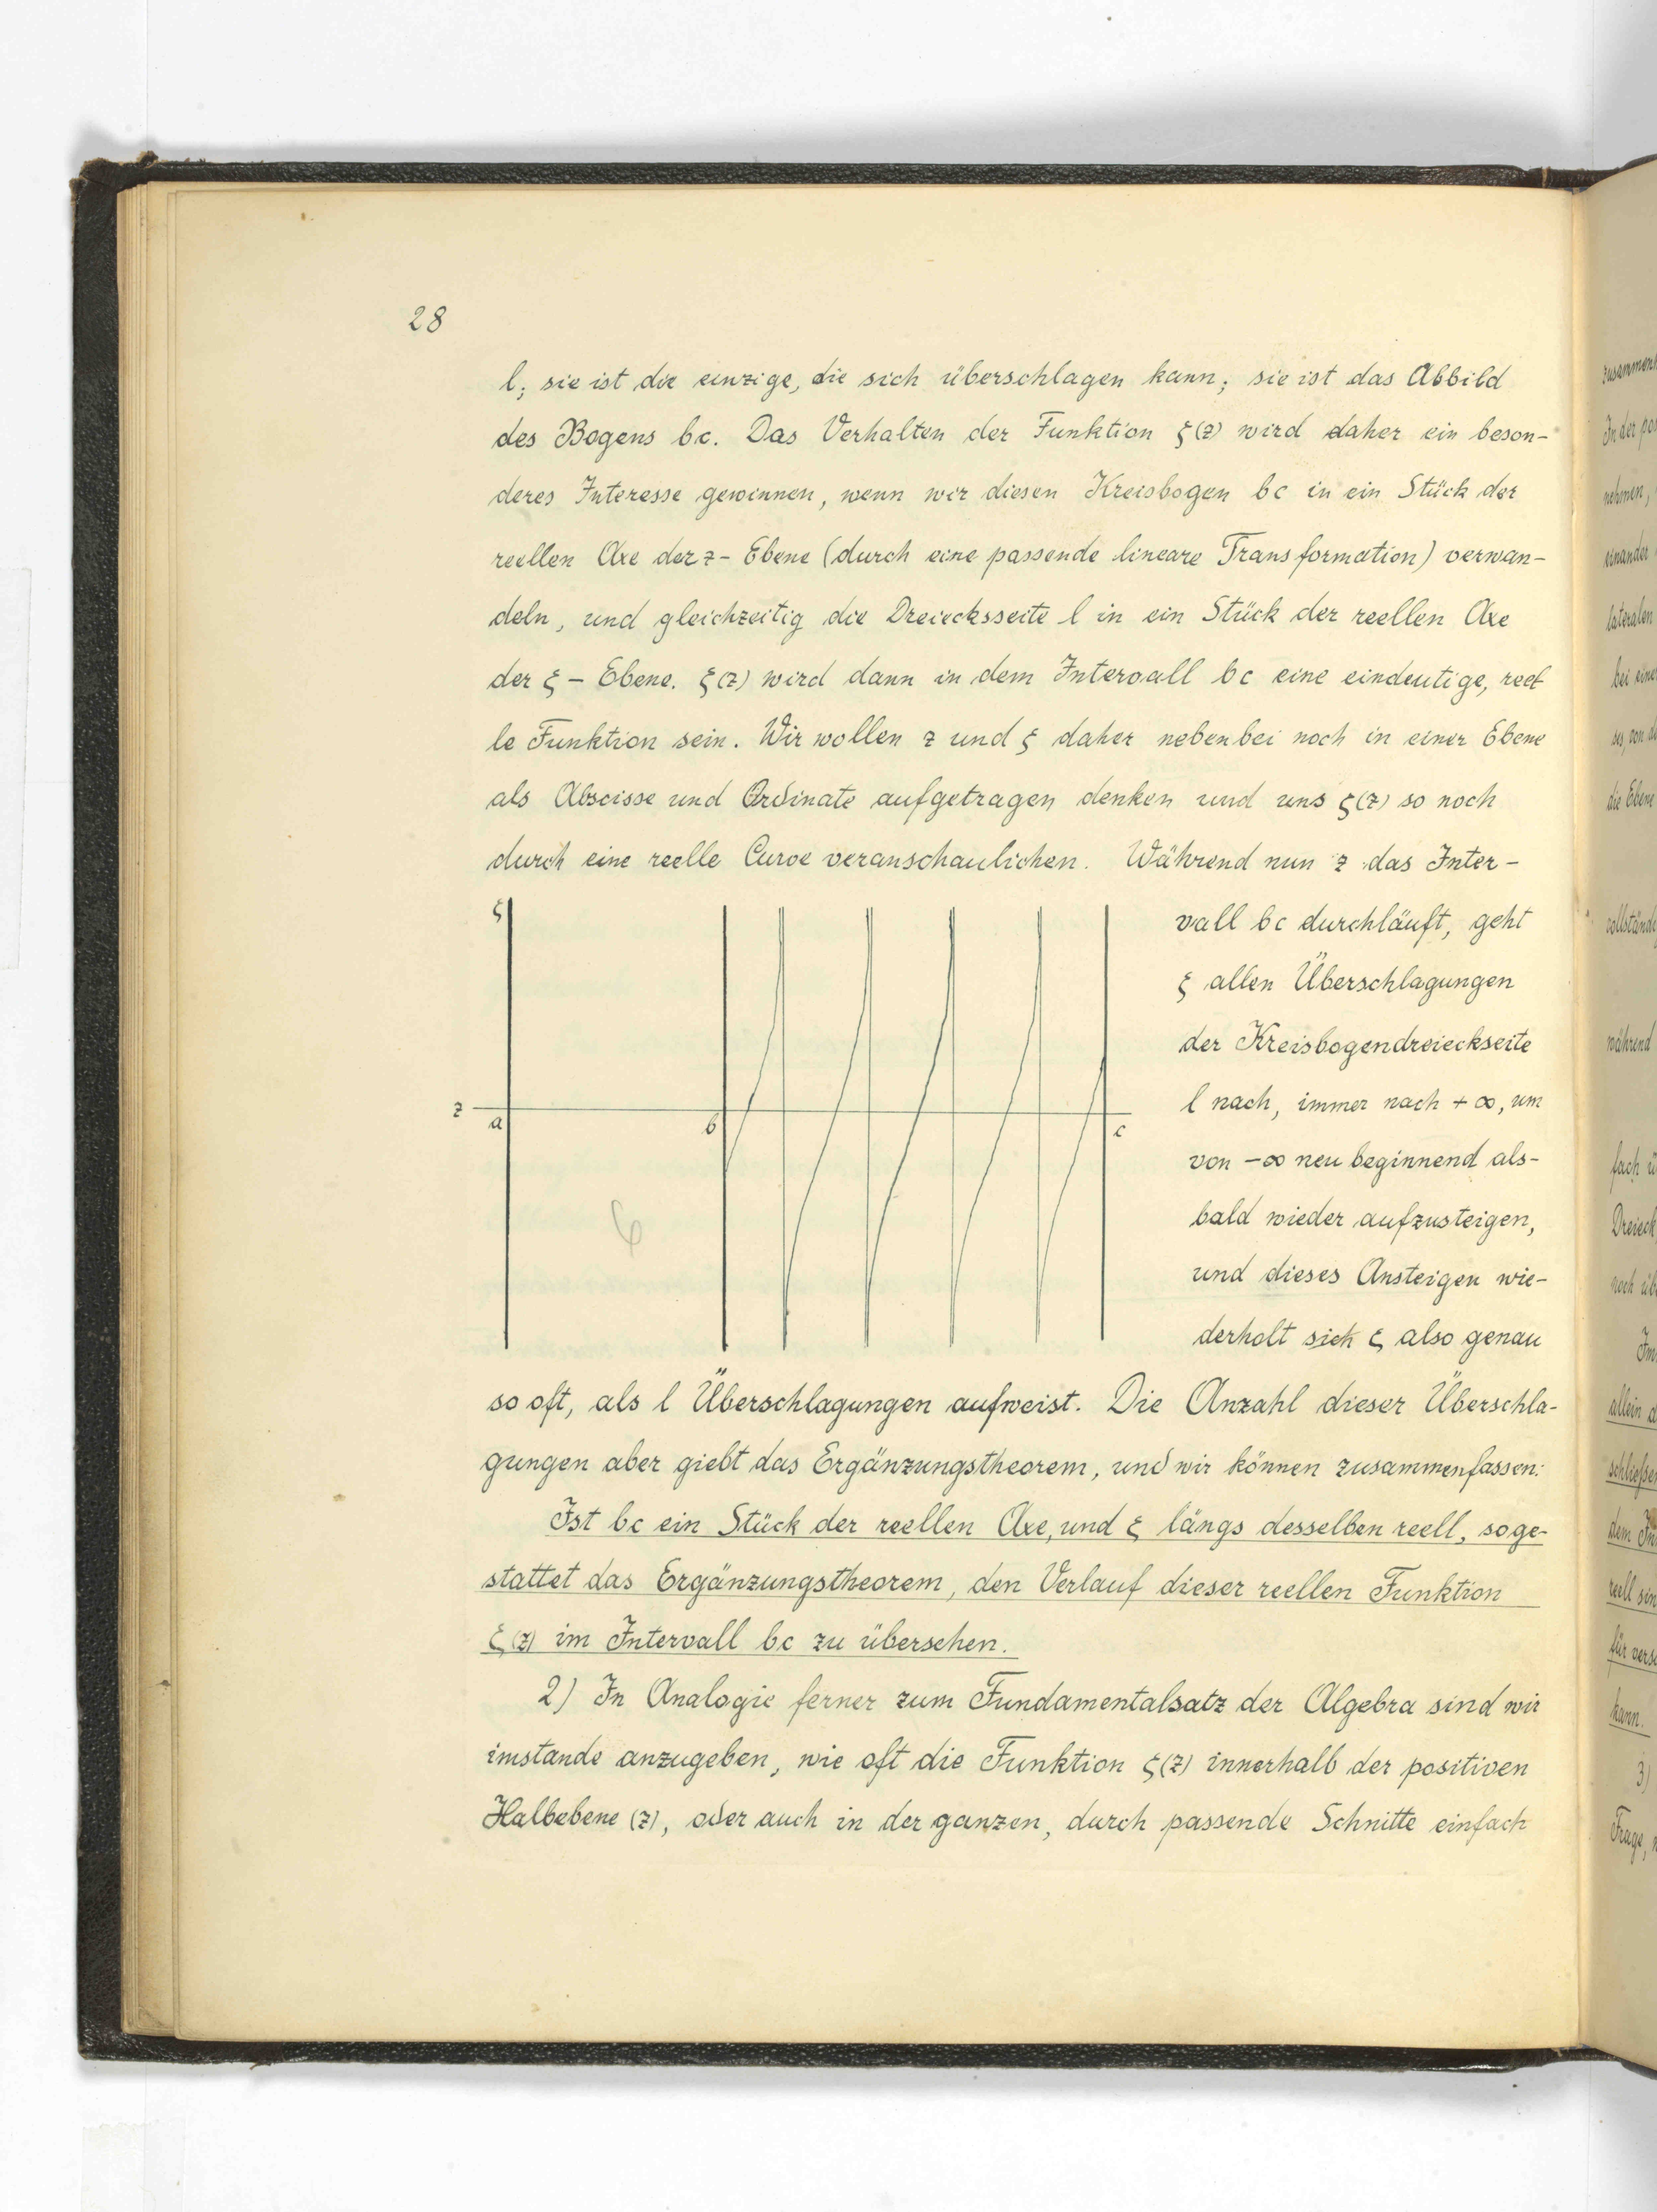 28
l; sie ist die einzige, die sich überschlagen kann; sie ist das Abbild
des Bogens bc. Das Verhalten der Funktion ξ(z) wird daher ein beson-
deres Interesse gewinnen, wenn wir diesen Kreisbogen bc in ein Stück der
reellen Axe der z-Ebene (durch eine passende lineare Transformation) verwan-
deln, und gleichzeitig die Dreiecksseite l in ein Stück der reellen Axe
der ξ-Ebene. ξ(z) wird dann in dem Intervall bc eine eindeutige, reel-
le Funktion sein. Wir wollen z und ξ daher nebenbei noch in einer Ebene
als Abscisse und Ordinate aufgetragen denken und uns ξ(z) so noch
durch eine reelle Curve veranschaulichen. Während nun z das Inter-
ξ
z
a
b
c
vall bc durchläuft, geht
ξ allen Überschlagungen
der Kreisbogendreieckseite
l nach, immer nach +∞, um
von -∞ neu beginnend als-
bald wieder aufzusteigen,
und dieses Ansteigen wie-
derholt sich ξ also genau
so oft, als l Überschlagungen aufweist. Die Anzahl dieser Überschla-
gungen aber giebt das Ergänzungstheorem, und wir können zusammenfassen:
Ist bc ein Stück der reellen Axe, und ξ längs desselben reell, so ge-
stattet das Ergänzungstheorem, den Verlauf dieser reellen Funktion
ξ(z) im Intervall bc zu übersehen.
2) In Analogie ferner zum Fundamentalsatz der Algebra sind wir
imstande anzugeben, wie oft die Funktion ξ(z) innerhalb der positiven
Halbebene (z), oder auch in der ganzen, durch passende Schnitte einfach